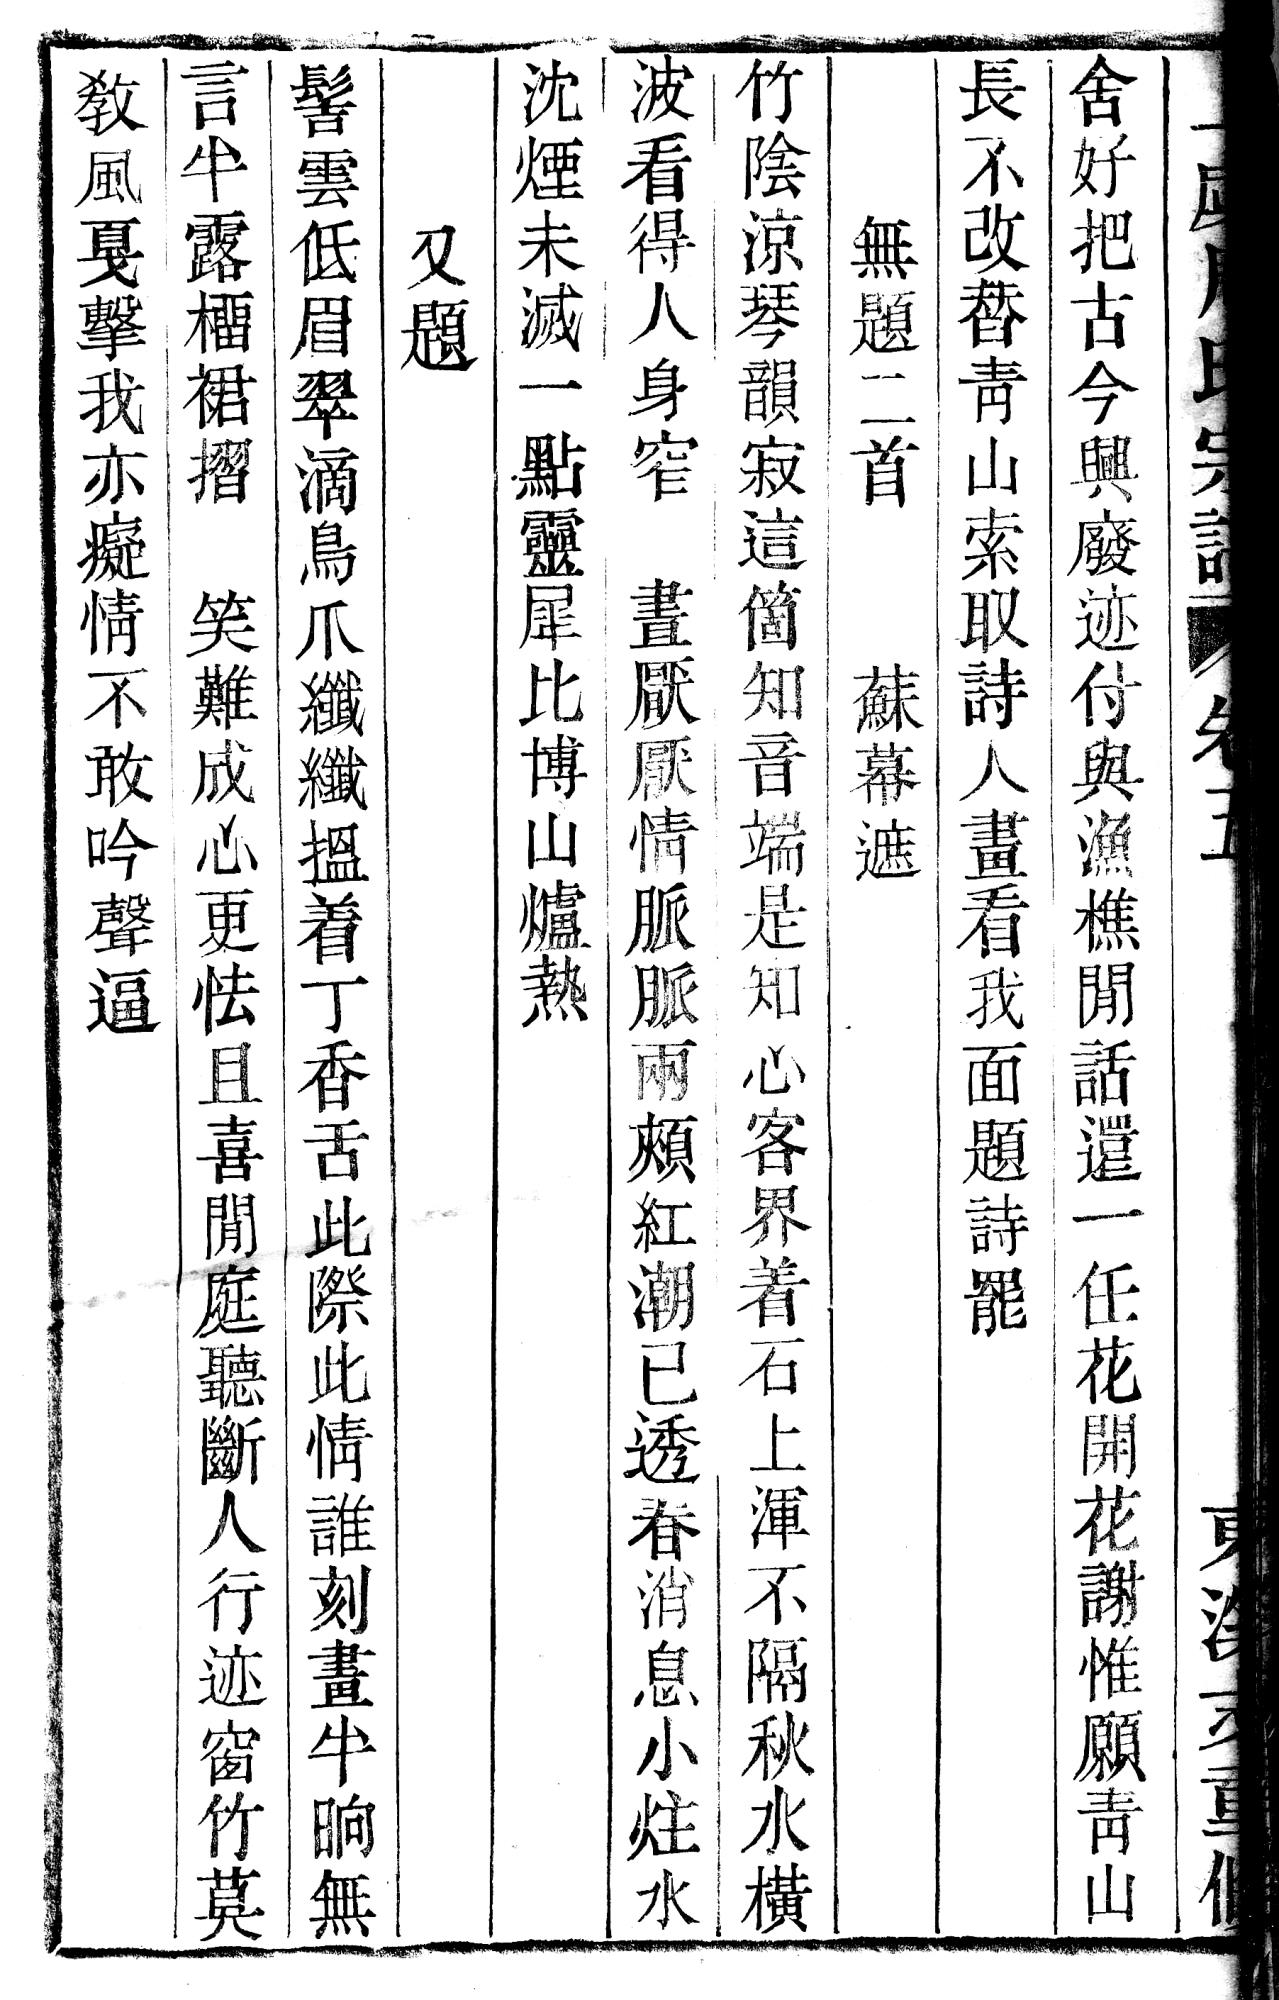 舍好把古今興廢迹付與漁樵閒話還一任花開花謝惟願青山
長不改朁青山索取詩人畫看我面題詩罷
無題二首 蘇幕遮
竹陰涼琴韻寂這箇知音端是知心客界着石上渾不隔秋水橫
波看得人身窄 晝厭厭情脈脈兩頰紅潮已透春消息小炷水
沈煙未滅一點靈犀比博山爐熱
又題
髻雲低眉翠滴鳥爪纖纖搵着丁香舌此際此情誰刻畫半晌無
言半露橊裙摺 笑難成心更怯且喜閒庭聽斷人行迹窗竹莫
敎風戛擊我亦癡情不敢吟聲逼
卷五
重修